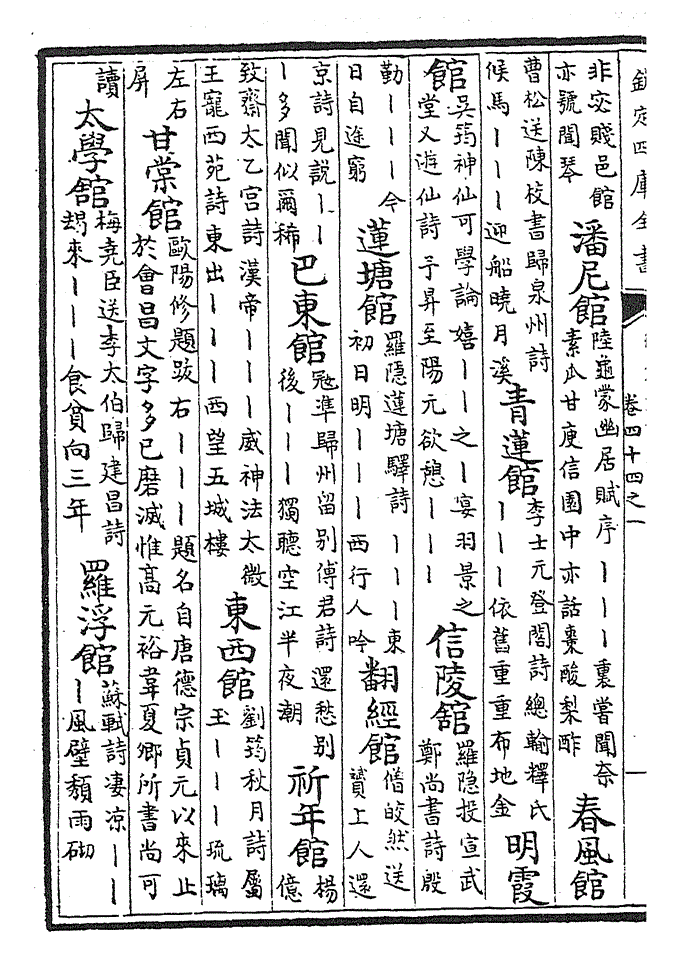 欽定四庫全書
卷四十四之一
非宓賤邑館亦號聞琴 潘尼館 陸龜蒙幽居賦序丨丨丨裏嘗聞奈素瓜甘庾信園中亦話棗酸梨酢 春風館
曹松送陳校書歸泉州詩候馬丨丨丨迎船曉月溪 青蓮館 李士元登閣詩總輸釋氏丨丨丨依舊重重布地金 明霞
館 吳筠神仙可學論嬉丨丨之丨宴羽景之堂又遊仙詩予昇至陽元欲憩丨丨丨 信陵舘 羅隐投宣武鄭尚書詩殷
勤丨丨丨今日自途窮 蓮塘館 羅隐蓮塘驛詩丨丨丨東初日明丨丨丨西行人吟 翻經館 僧皎然送贇上人還
京詩見説丨丨丨多聞似爾稀 巴東館 冦準歸州留别傅君詩還愁别後丨丨丨獨聽空江半夜潮 祈年館 楊億
致齋太乙宫詩漢帝丨丨丨威神法太微王寵西苑詩東出丨丨丨西望五城樓 東西館 劉筠秋月詩屬玉丨丨丨琉璃
左右屏 甘棠館 歐陽修題跋右丨丨丨題名自唐德宗貞元以來止於會昌文字多已磨滅惟髙元裕韋夏卿所書尚可
讀 太學舘 梅堯臣送李太伯歸建昌詩朅來丨丨丨食貧向三年 羅浮館 蘇軾詩凄凉丨丨丨風壁頽雨砌
一